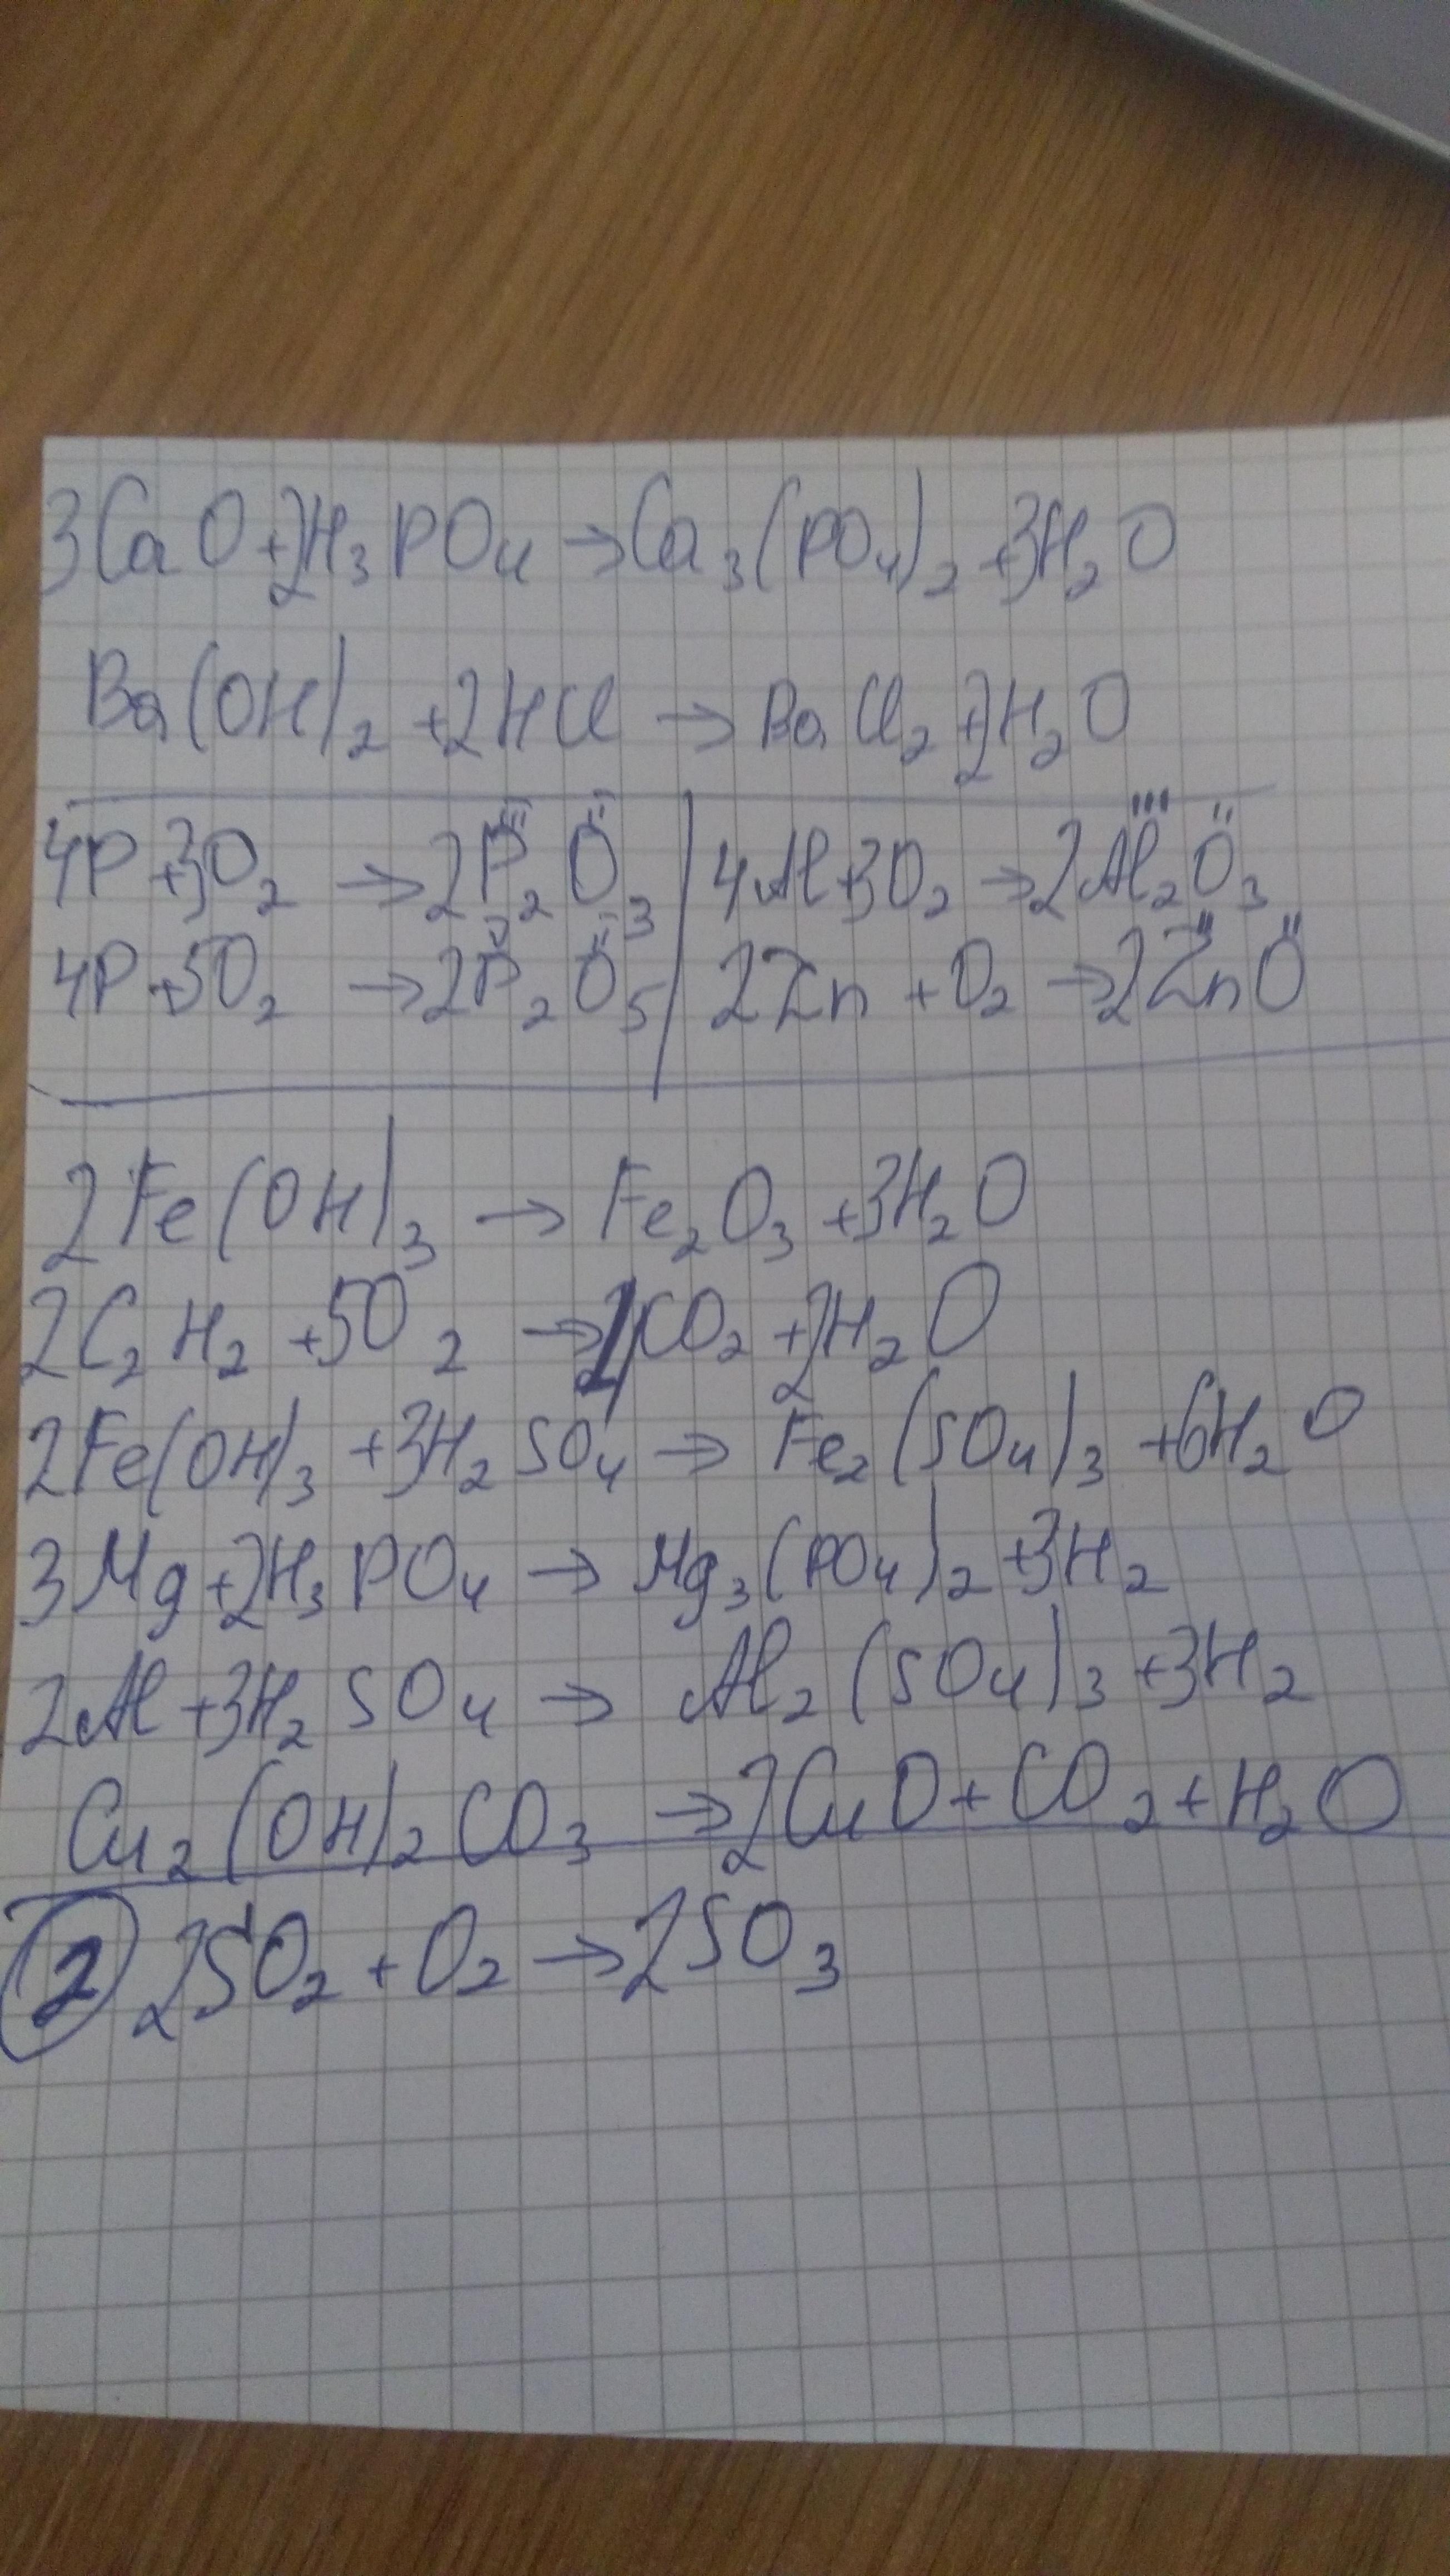 3CaO+2H₃PO₄→Ca₃(PO₄)₂+3H₂O
Ba(OH)₂+2HCl→BaCl₂+2H₂O
4P+3O₂→2P₂O₃ | 4Al+3O₂→2Al₂O₃
4P+5O₂→2P₂O₅ | 2Zn+O₂→2ZnO
2Fe(OH)₃→Fe₂O₃+3H₂O
2C₂H₂+5O₂→CO₂+2H₂O
2Fe(OH)₃+3H₂SO₄→Fe₂(SO₄)₃+6H₂O
3Mg+2H₃PO₄→Mg₃(PO₄)₂+3H₂
2Al+3H₂SO₄→Al₂(SO₄)₃+3H₂
Cu₂(OH)₂CO₃→2CuO+CO₂+H₂O
② 2SO₂+O₂→2SO₃